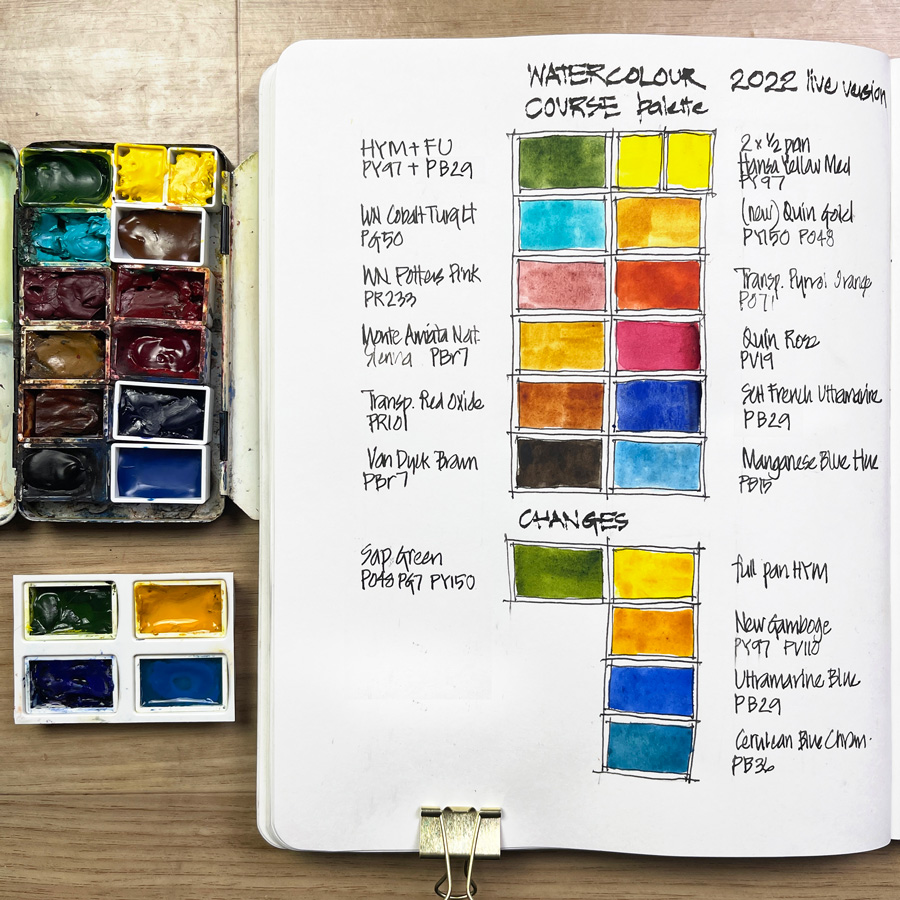 WATERCOLOUR
COURSE palette
2022 live version
HYM + FU
PY97 + PB29
2 x ½ pan
Hansa Yellow Med
PY97
WN Cobalt Turq Lt
PG50
(new) Quin Gold
PY150 PO48
WN Potters Pink
PR233
Transp. Pyrrol Orange
PO71
Monte Amiata Nat.
Sienna PBr7
Quin Rose
PV19
Transp. Red Oxide
PR101
Sch French Ultramarine
PB29
Van Dyck Brown
PBr7
Manganese Blue Hue
PB15
CHANGES
Sap Green
PO48 PG7 PY150
full pan HYM
New Gamboge
PY97 PY110
Ultramarine Blue
PB29
Cerulean Blue Chrom.
PB36